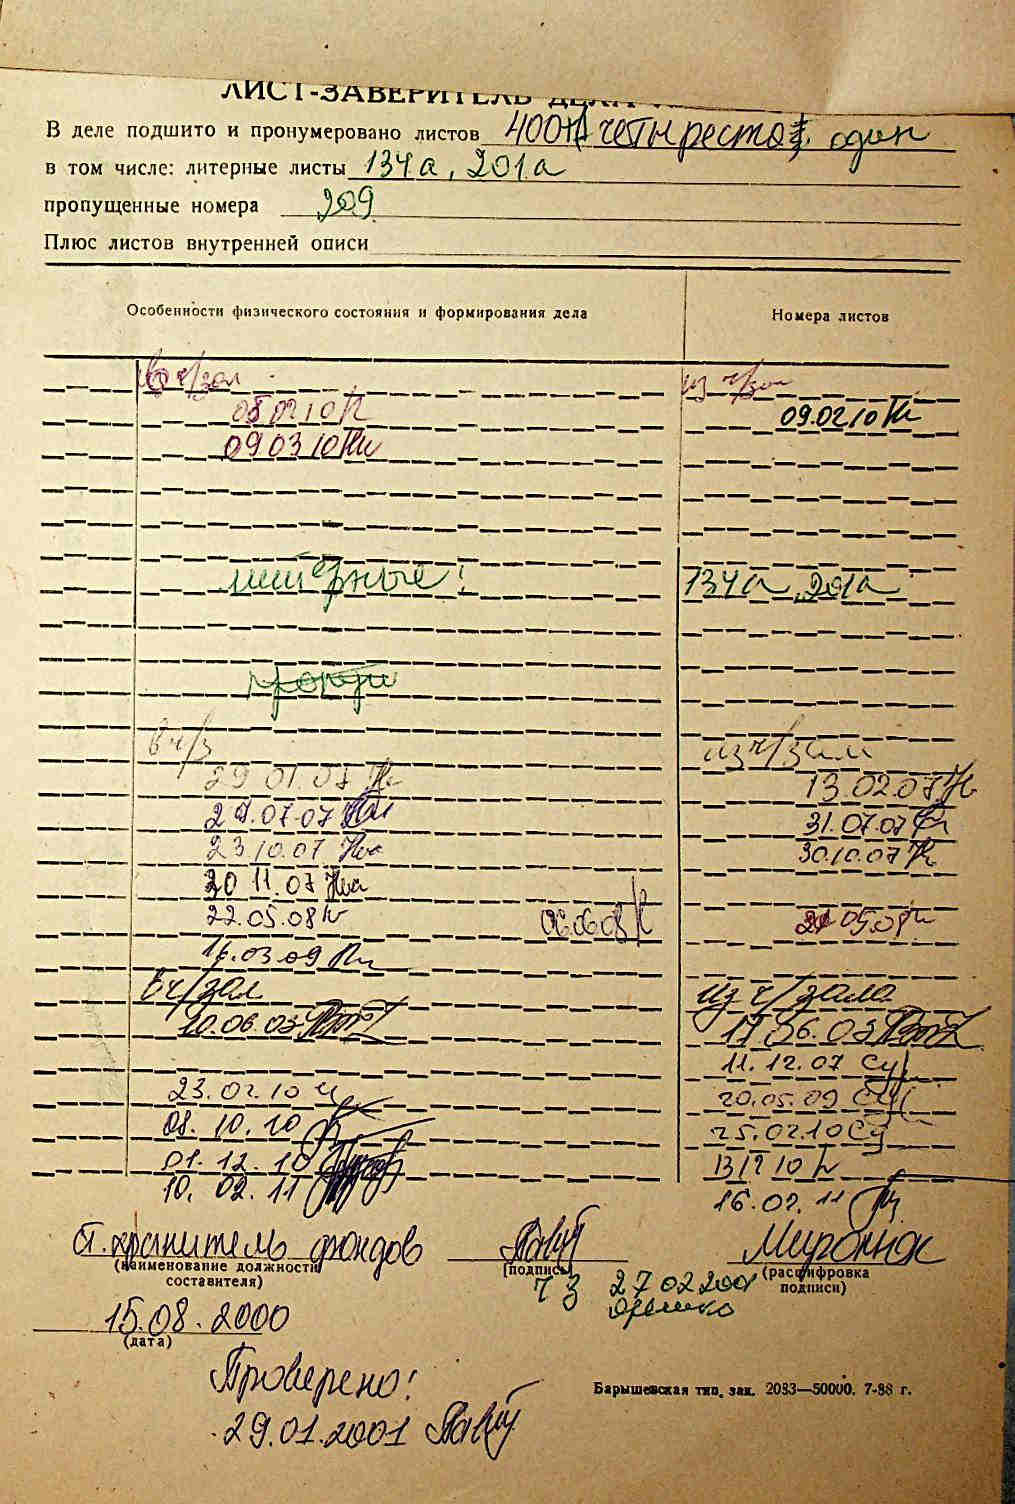 ЛИСТ-ЗАВЕРИТЕЛЬ ДЕЛА
В деле подшито и пронумеровано листов четыреста один
в том числе: литерные листы 134а, 201а
пропущенные номера 209
Плюс листов внутренней описи
Особенности физического состояния и формирования дела Номера листов
в ч/зал из ч/зал
08 02 10 09.02.10
09 03 10
литерные! 134а, 201а
в ч/з из ч/зала
29 01.07 13.02.07
31.07.07
23 10.07 30.10.07
20 11.07
22.05.08 06.06.08 05.08
16.03.09
в ч/зал из ч/зала
10.06.03 11.06.03
11.12.07
23.02.10 20.05.09
08.10.10 25.02.10
01.12.10
10.02.11 16.02.11
хранитель фондов
(наименование должности (подпись) (расшифровка
составителя) подписи)
ч з 27 02 2001
15.08.2000
(дата)
Проверено!
29.01.2001
Барышевская тип. зак. 2083—50000. 7-88 г.